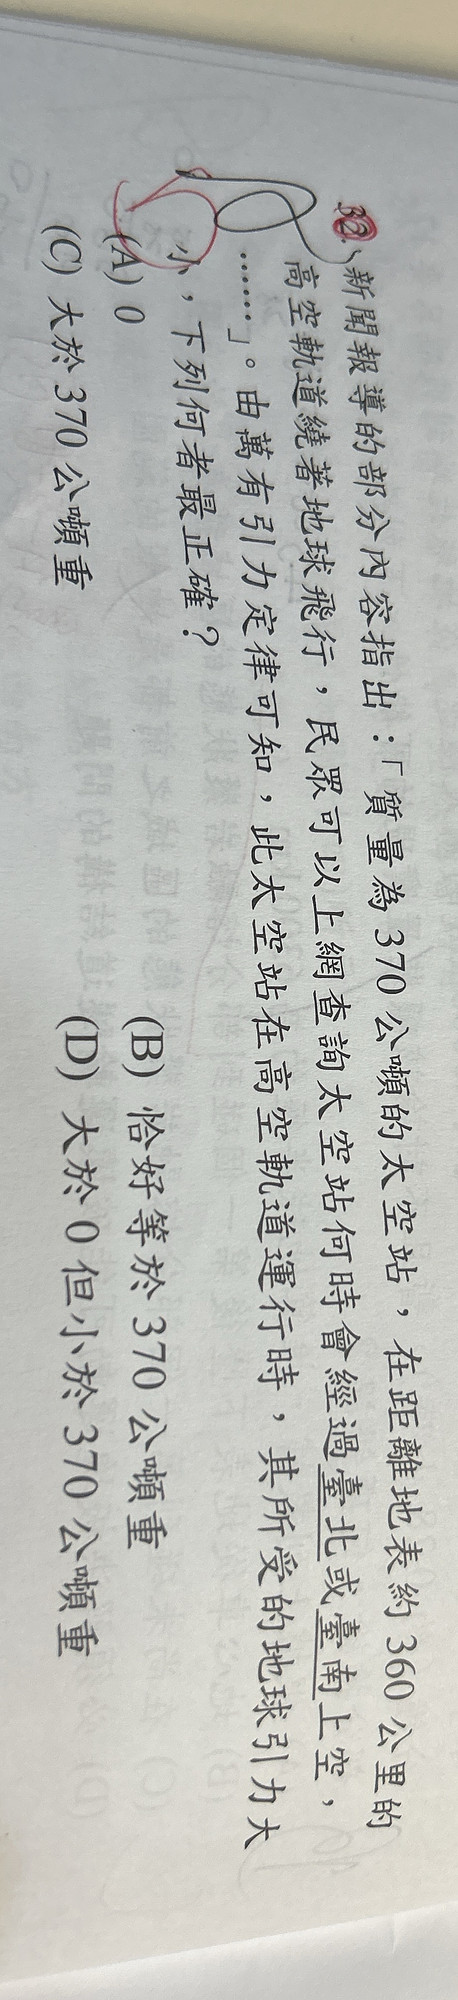 32、新聞報導的部分內容指出：「質量為370公噸的太空站，在距離地表約360公里的
高空軌道繞著地球飛行，民眾可以上網查詢太空站何時會經過臺北或臺南上空，
……」。由萬有引力定律可知，此太空站在高空軌道運行時，其所受的地球引力大
小，下列何者最正確？
(A) 0 (B) 恰好等於370公噸重
(C) 大於370公噸重 (D) 大於0但小於370公噸重